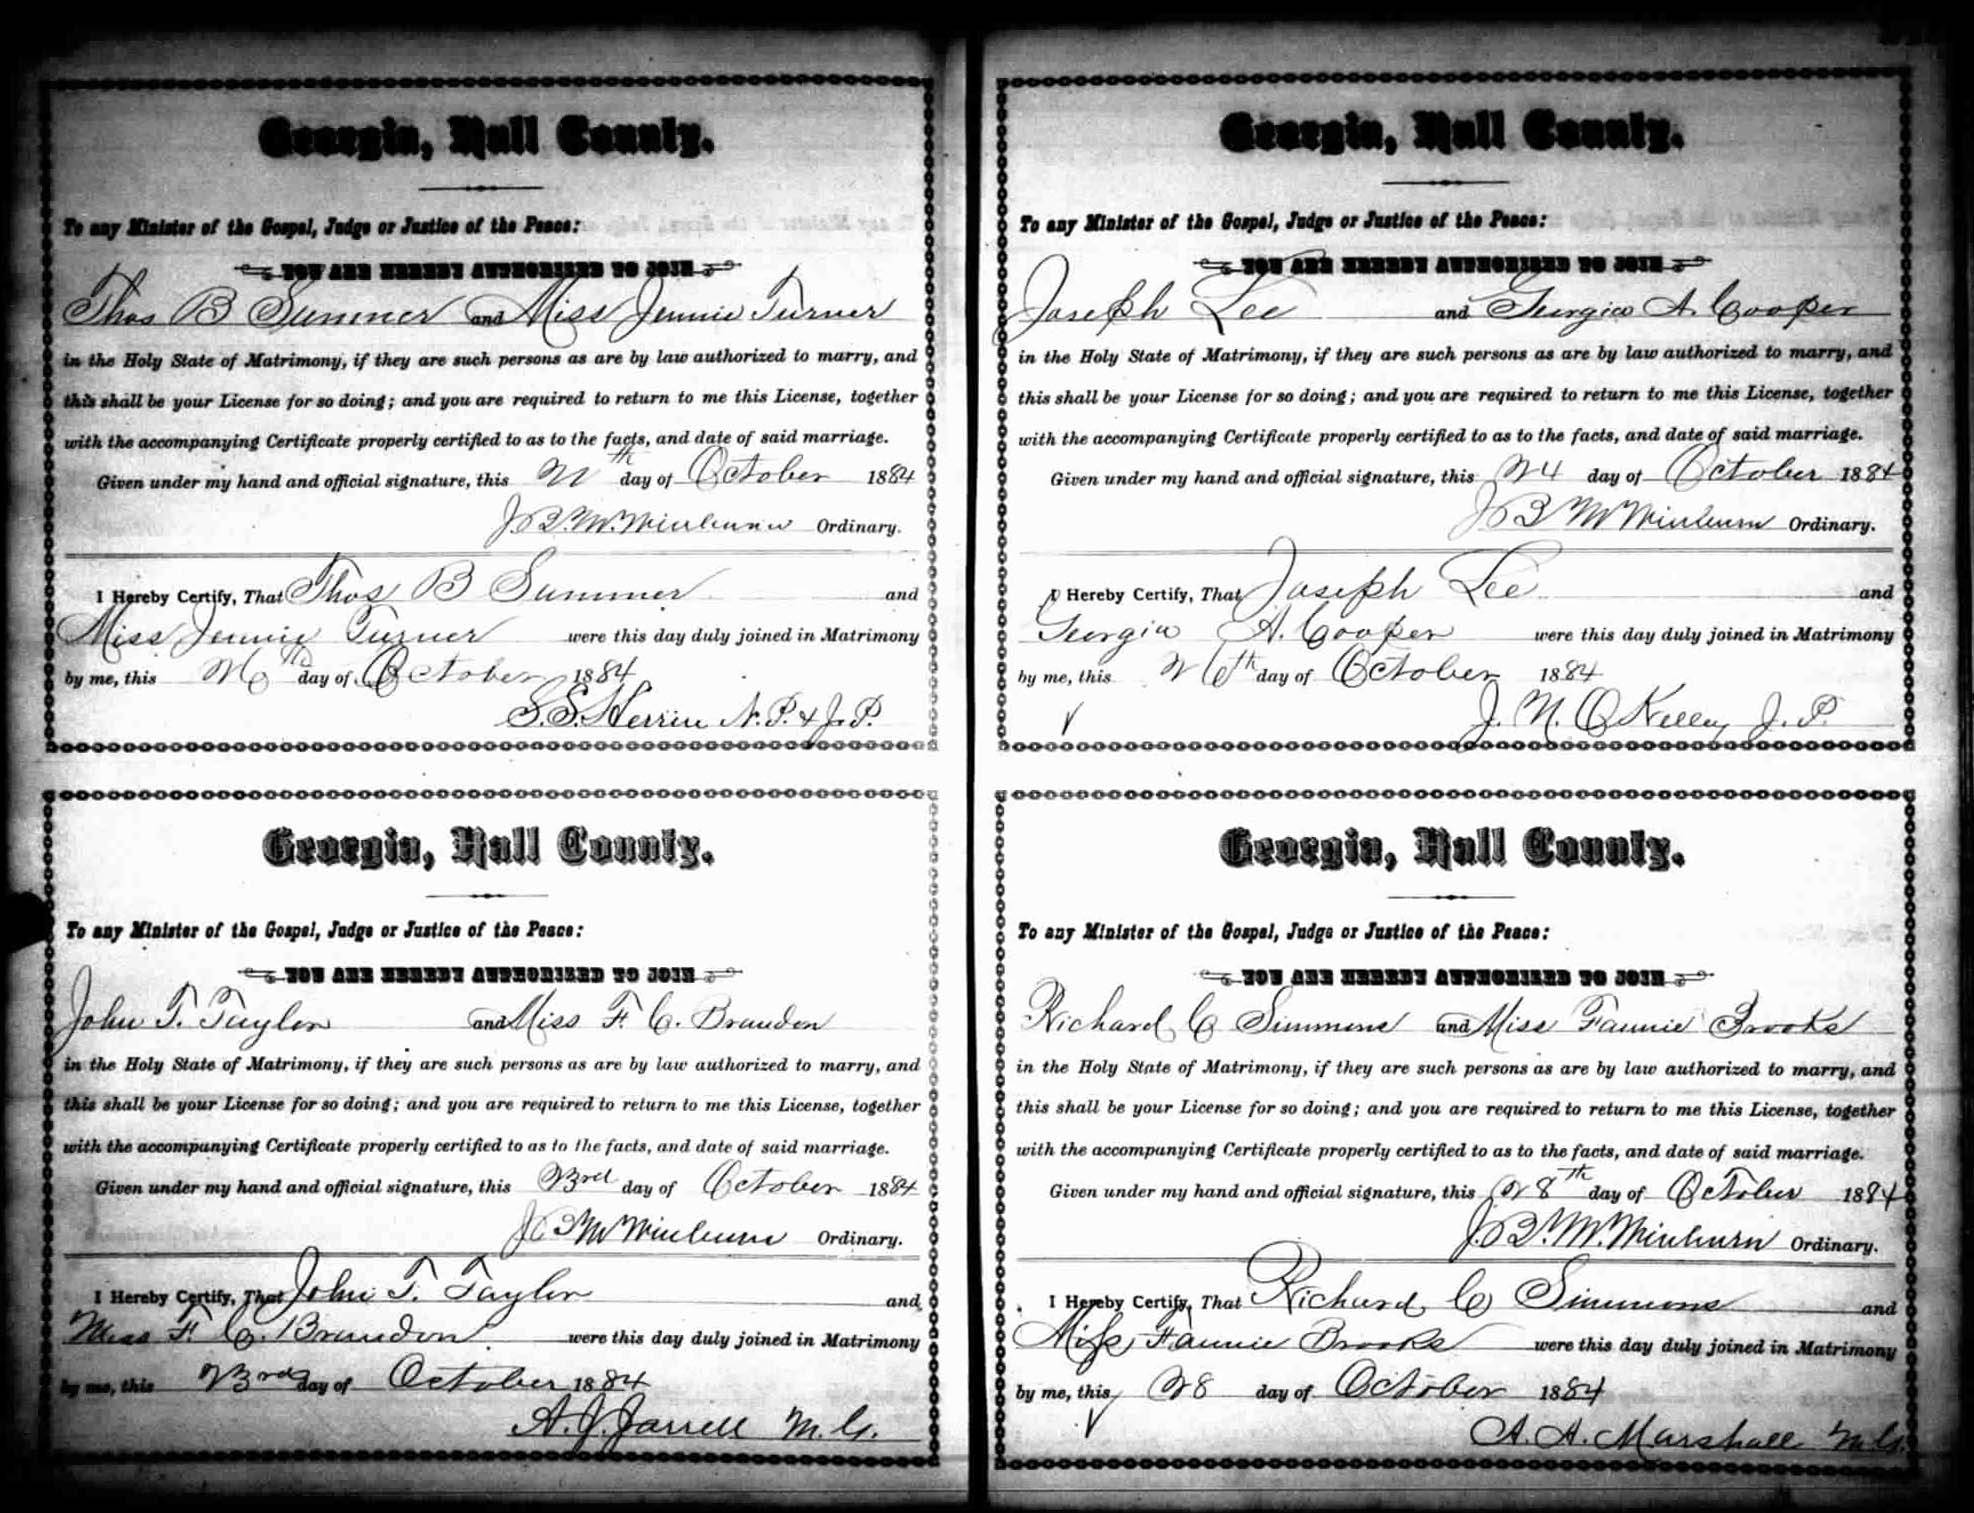 Georgia, Hall County.
To any Minister of the Gospel, Judge or Justice of the Peace:
YOU ARE HEREBY AUTHORIZED TO JOIN
Thos B Summer and Miss Jennie Turner
in the Holy State of Matrimony, if they are such persons as are by law authorized to marry, and
this shall be your License for so doing; and you are required to return to me this License, together
with the accompanying Certificate properly certified to as to the facts, and date of said marriage.
Given under my hand and official signature, this th day of October 1884
J. B. M. Winburn Ordinary.
I Hereby Certify, That Thos B Summer and
Miss Jennie Turner were this day duly joined in Matrimony
by me, this 26th day of October 1884
S. S. Herrin N. P. & J. P.
Georgia, Hall County.
To any Minister of the Gospel, Judge or Justice of the Peace:
YOU ARE HEREBY AUTHORIZED TO JOIN
John T. Taylor and Miss F. C. Brandon
in the Holy State of Matrimony, if they are such persons as are by law authorized to marry, and
this shall be your License for so doing; and you are required to return to me this License, together
with the accompanying Certificate properly certified to as to the facts, and date of said marriage.
Given under my hand and official signature, this 23rd day of October 1884
J B M Winburn Ordinary.
I Hereby Certify, That John T. Taylor and
Miss F. C. Brandon were this day duly joined in Matrimony
by me, this 23rd day of October 1884
A. J. Jarrell M. G.
Georgia, Hall County.
To any Minister of the Gospel, Judge or Justice of the Peace:
YOU ARE HEREBY AUTHORIZED TO JOIN
Joseph Lee and Georgia A. Cooper
in the Holy State of Matrimony, if they are such persons as are by law authorized to marry, and
this shall be your License for so doing; and you are required to return to me this License, together
with the accompanying Certificate properly certified to as to the facts, and date of said marriage.
Given under my hand and official signature, this 24 day of October 1884
J B M Winburn Ordinary.
I Hereby Certify, That Joseph Lee and
Georgia A. Cooper were this day duly joined in Matrimony
by me, this 26th day of October 1884
J. N. OKelley J. P.
Georgia, Hall County.
To any Minister of the Gospel, Judge or Justice of the Peace:
YOU ARE HEREBY AUTHORIZED TO JOIN
Richard C Simmons and Miss Fannie Brooks
in the Holy State of Matrimony, if they are such persons as are by law authorized to marry, and
this shall be your License for so doing; and you are required to return to me this License, together
with the accompanying Certificate properly certified to as to the facts, and date of said marriage.
Given under my hand and official signature, this 28th day of October 1884
J. B. M. Winburn Ordinary.
I Hereby Certify, That Richard C Simmons and
Miss Fannie Brooks were this day duly joined in Matrimony
by me, this 28 day of October 1884
A. A. Marshall M. G.